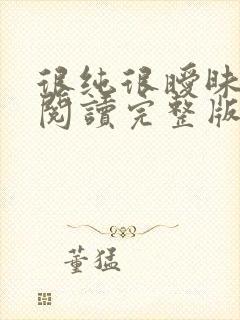 很纯很曖昧
閱讀完整版
董猛